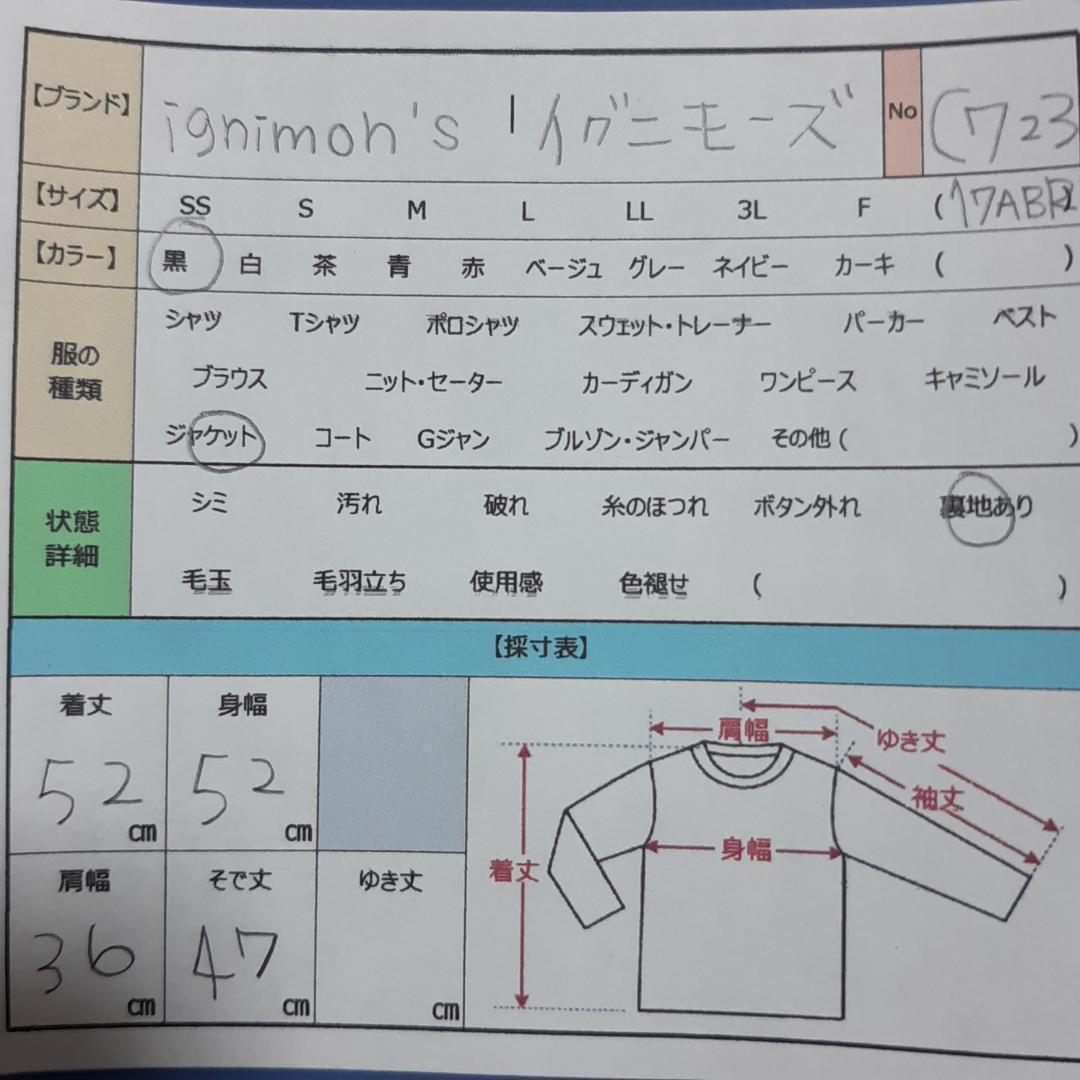 【ブランド】 ignimon's 「イグニモーズ No (723
【サイズ】 SS S M L LL 3L F (17ABR)
【カラー】 黒 白 茶 青 赤 ベージュ グレー ネイビー カーキ ( )
服の種類 シャツ Tシャツ ポロシャツ スウェット・トレーナー パーカー ベスト
ブラウス ニット・セーター カーディガン ワンピース キャミソール
ジャケット コート Gジャン ブルゾン・ジャンパー その他 ( )
状態詳細 シミ 汚れ 破れ 糸のほつれ ボタン外れ 裏地あり
毛玉 毛羽立ち 使用感 色褪せ ( )
【採寸表】
着丈 身幅
52 cm 52 cm
肩幅 そで丈 ゆき丈
36 cm 47 cm cm
肩幅
ゆき丈
袖丈
身幅
着丈